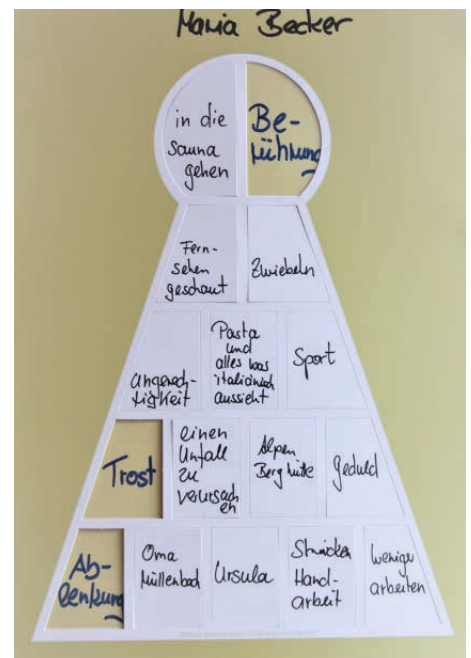 Maria Becker
in die
Sauna
gehen
Be-
rührung
Fern-
sehen
geschaut
Zwiebeln
Ungerech-
tigkeit
Pasta
und
alles was
italienisch
aussieht
Sport
Trost
einen
Unfall
zu
verursach
en
Alpen
Berghütte
Geduld
Ab-
lenkung
Oma
Ursula
Stricken
Hand-
arbeit
weniger
arbeiten